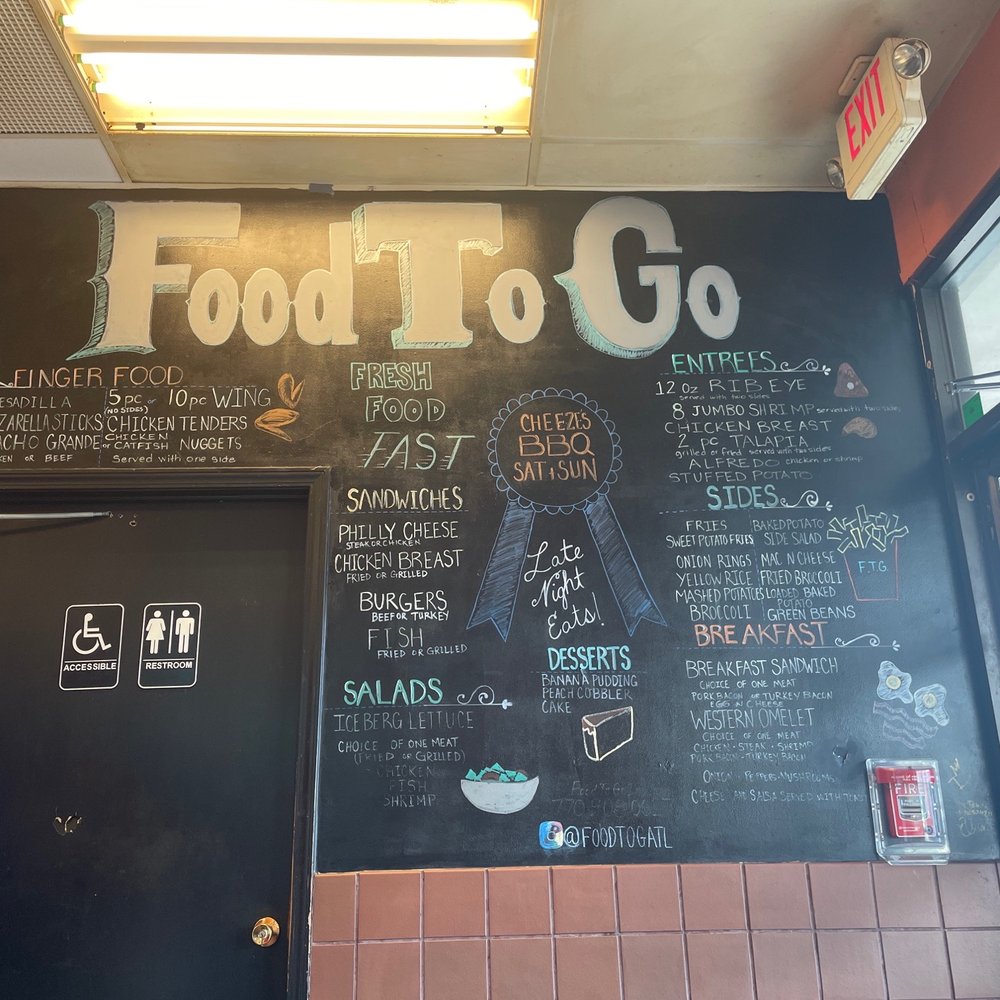 Food To Go
EXIT
FINGER FOOD
ESADILLA
ZARELLA STICKS
ACHO GRANDE
EN OR BEEF
5 PC or 10 PC WING
(NO SIDES)
CHICKEN TENDERS
CHICKEN
OR CATFISH NUGGETS
Served with one side
FRESH
FOOD
FAST
CHEEZE'S
BBQ
SAT & SUN
Late
Night
Eats!
SANDWICHES
PHILLY CHEESE
STEAK OR CHICKEN
CHICKEN BREAST
FRIED OR GRILLED
BURGERS
BEEF OR TURKEY
FISH
FRIED OR GRILLED
SALADS
ICEBERG LETTUCE
CHOICE OF ONE MEAT
(FRIED OR GRILLED)
CHICKEN
FISH
SHRIMP
DESSERTS
BANANA PUDDING
PEACH COBBLER
CAKE
Food To Go
@FOODTOGATL
ENTREES
12 oz RIBEYE
served with two sides
8 JUMBO SHRIMP served with two sides
CHICKEN BREAST
2 pc TALAPIA
grilled or fried served with two sides
ALFREDO chicken or shrimp
STUFFED POTATO
SIDES
FRIES
SWEET POTATO FRIES
ONION RINGS
YELLOW RICE
MASHED POTATOES
BROCCOLI
BAKED POTATO
SIDE SALAD
MAC N CHEESE
FRIED BROCCOLI
LOADED BAKED
POTATO
GREEN BEANS
F.T.G.
BREAKFAST
BREAKFAST SANDWICH
CHOICE OF ONE MEAT
PORK BACON OR TURKEY BACON
EGG N CHEESE
WESTERN OMELET
CHOICE OF ONE MEAT
CHICKEN • STEAK • SHRIMP
PORK BACON • TURKEY BACON
ONION • PEPPERS • MUSHROOMS
CHEESE AND SALSA SERVED WITH TOAST
ACCESSIBLE
RESTROOM
FIRE